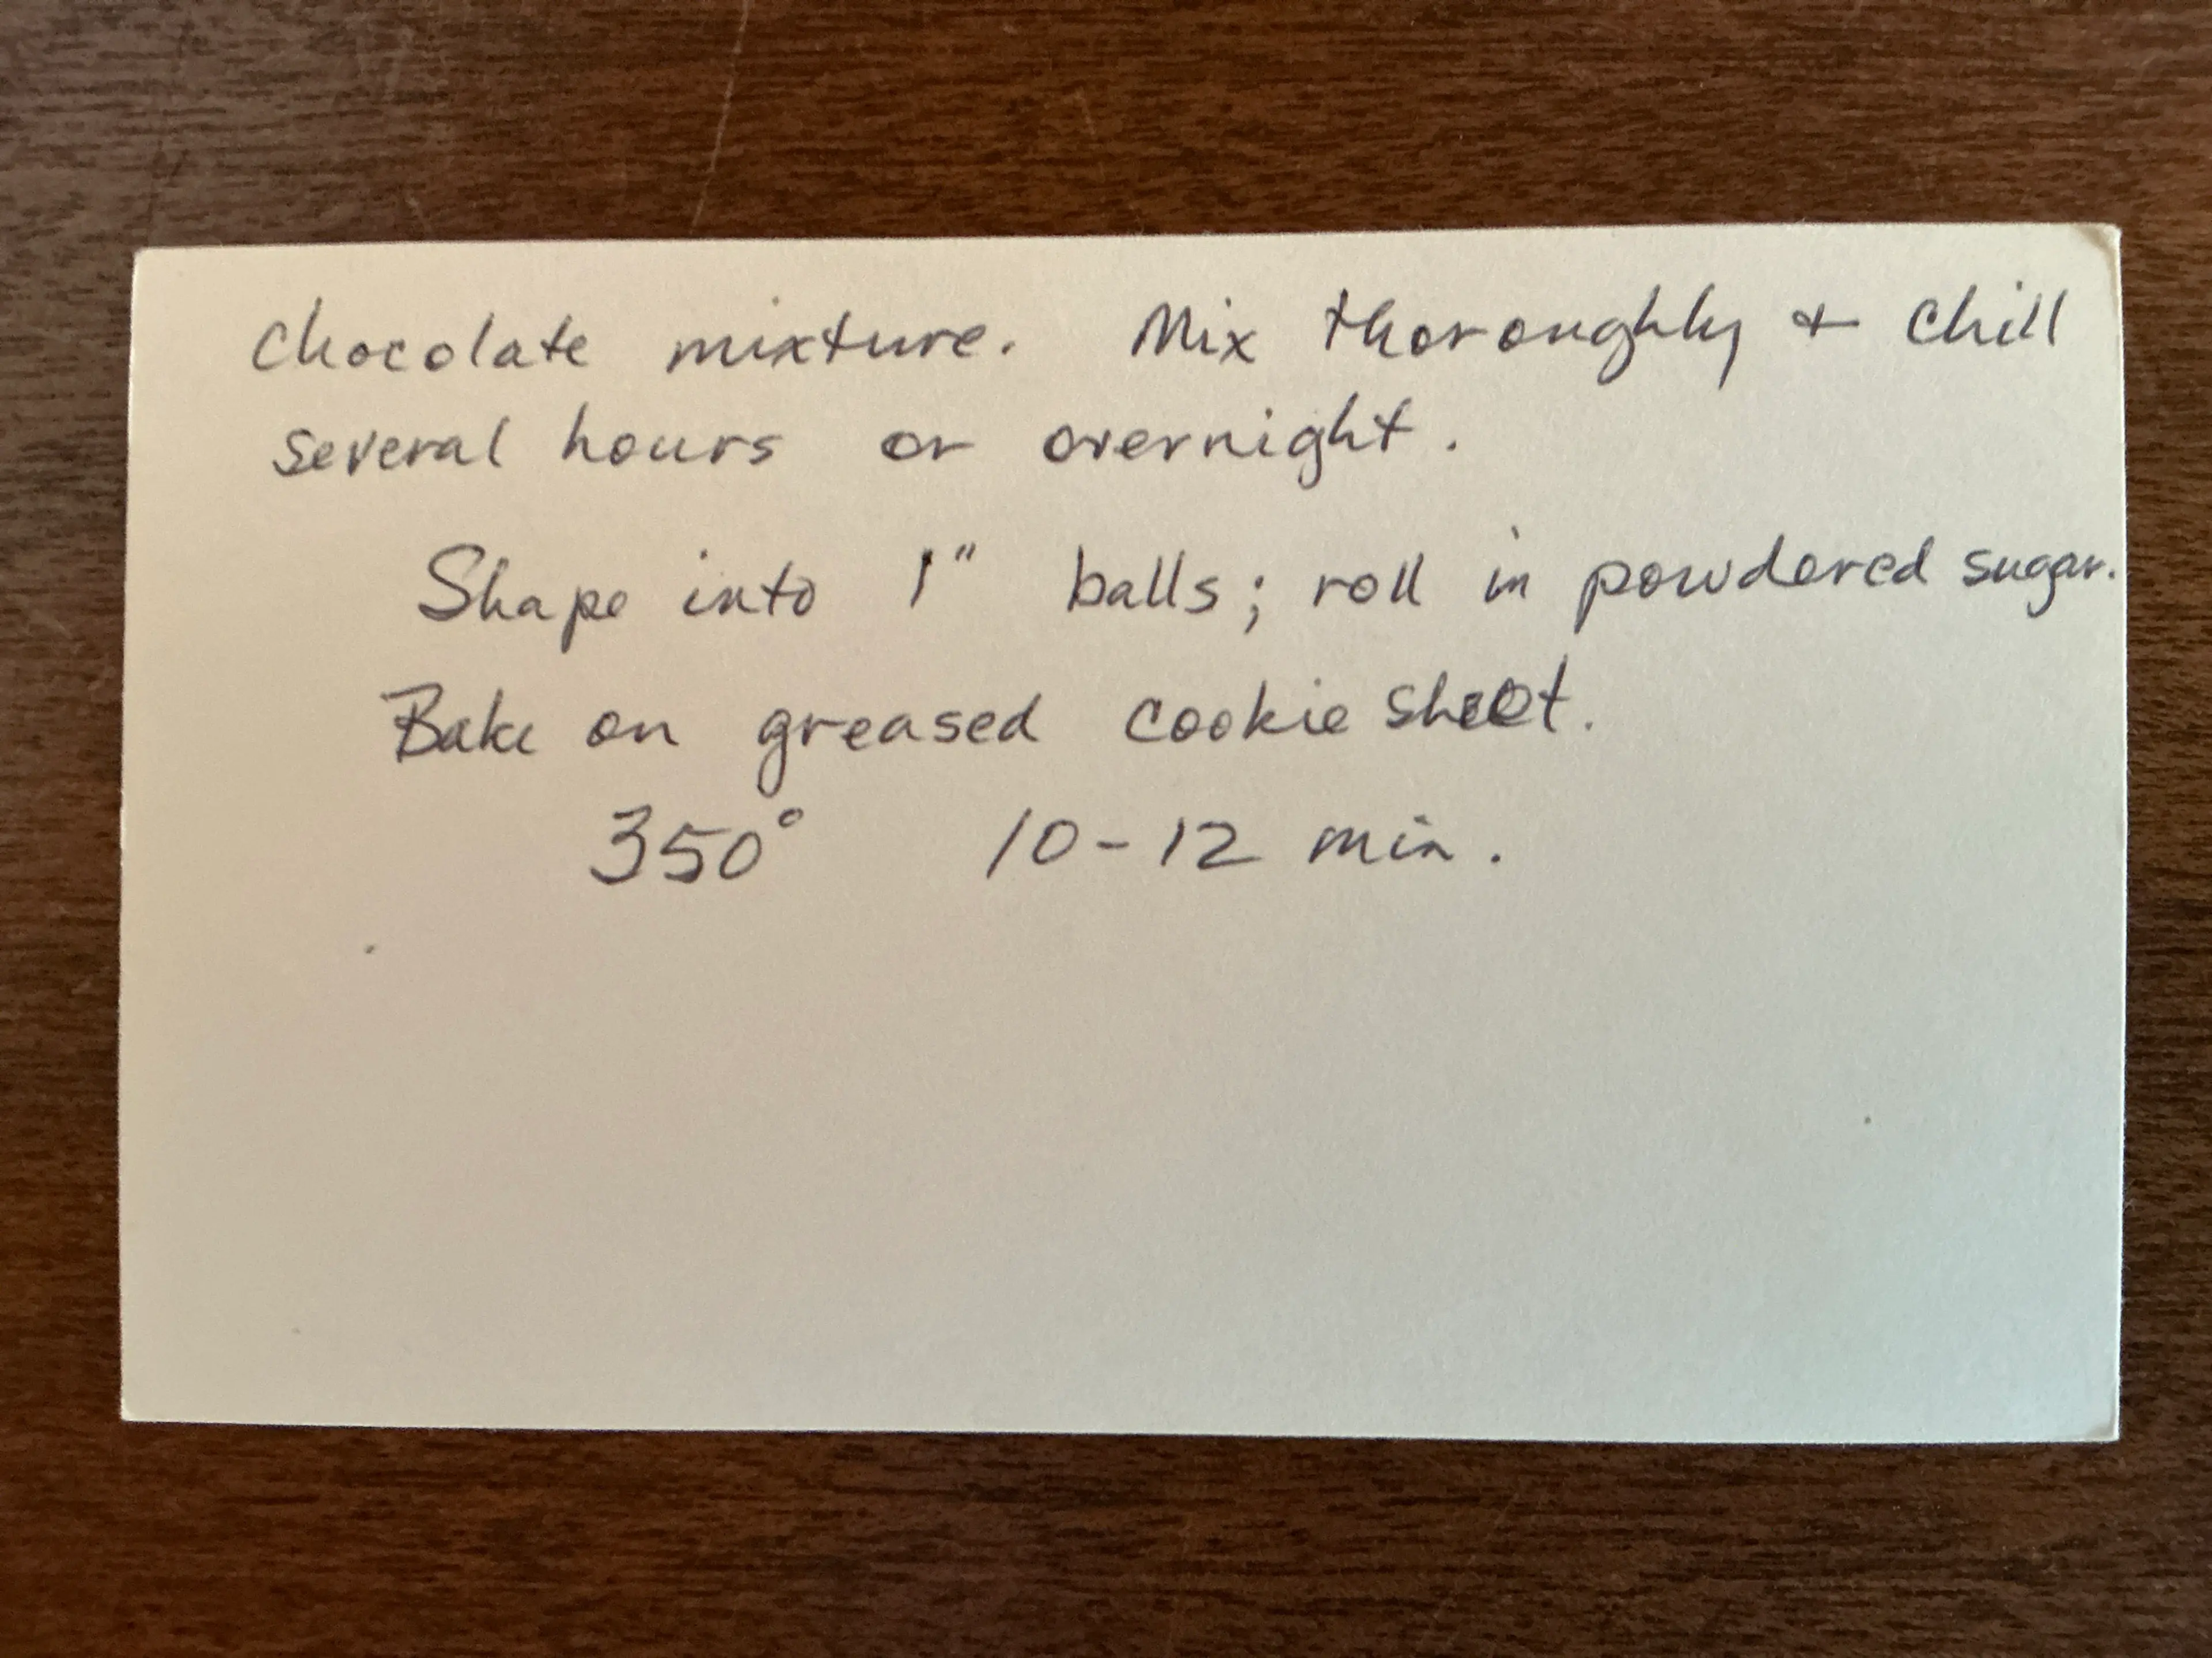 chocolate mixture. Mix thoroughly + chill
several hours or overnight.
Shape into 1" balls; roll in powdered sugar.
Bake on greased cookie sheet.
350° 10-12 min.